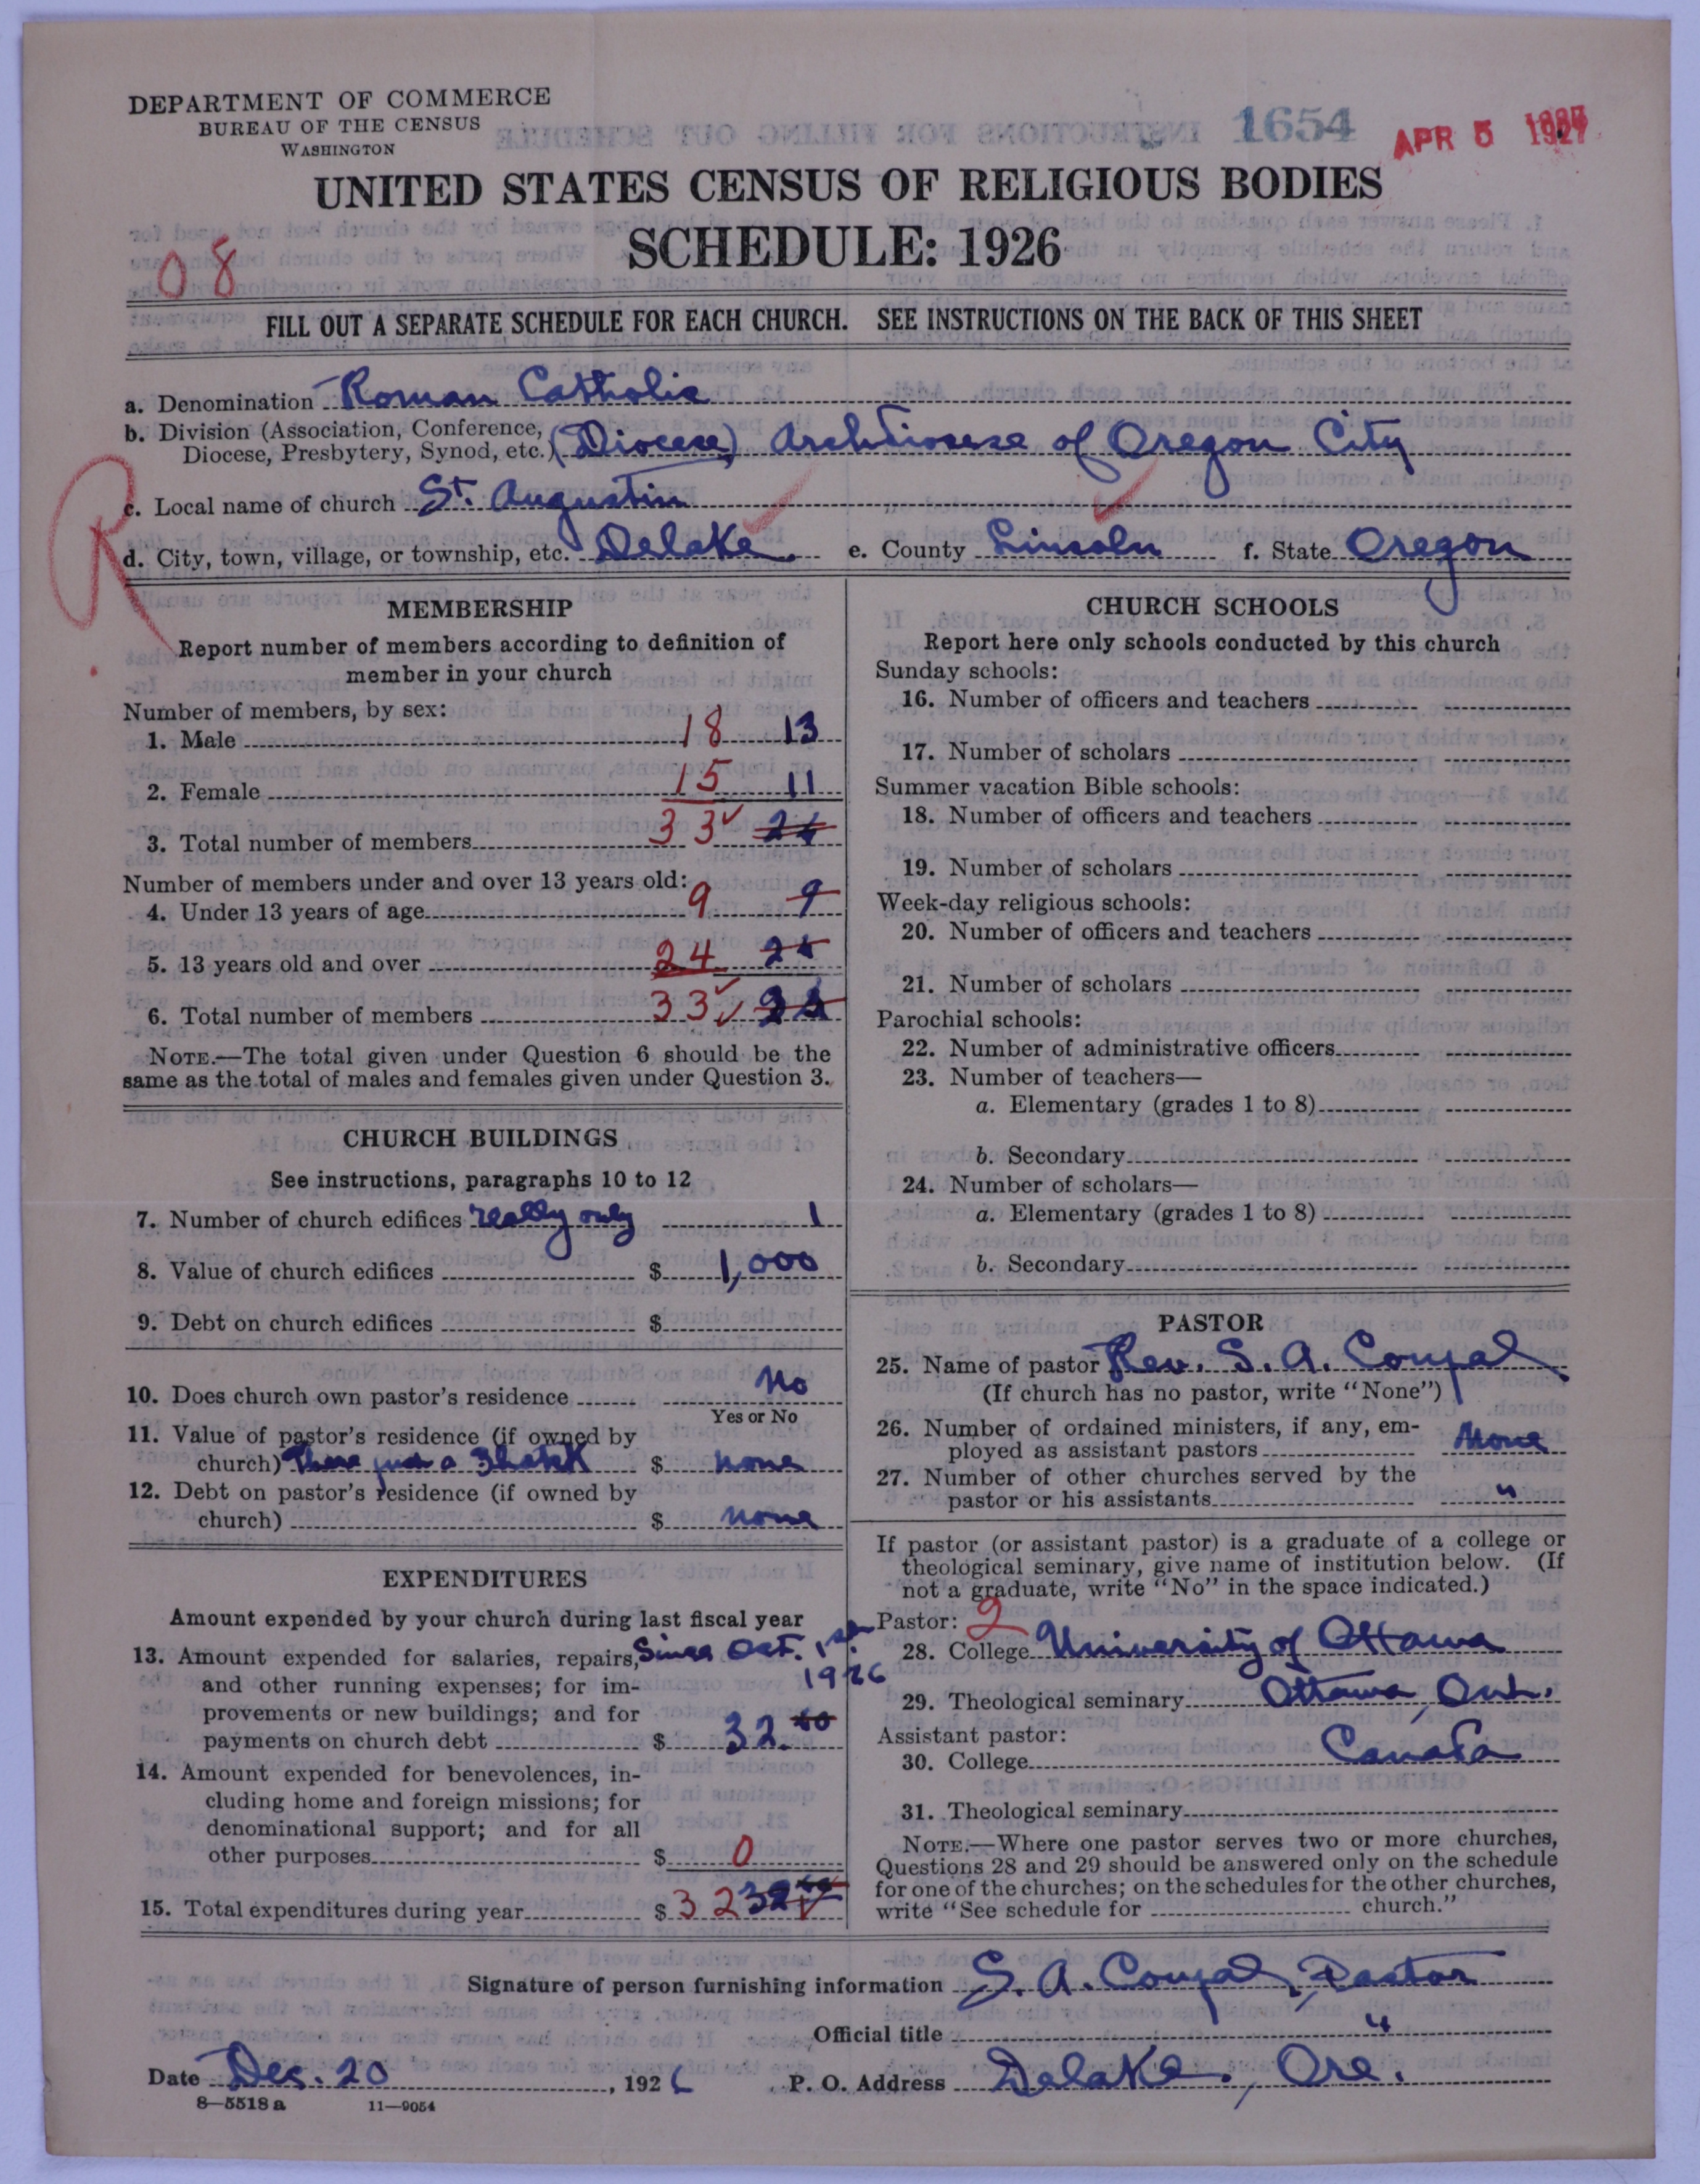 DEPARTMENT OF COMMERCE
BUREAU OF THE CENSUS
WASHINGTON
1654
APR 5 1927
UNITED STATES CENSUS OF RELIGIOUS BODIES
SCHEDULE: 1926
08
FILL OUT A SEPARATE SCHEDULE FOR EACH CHURCH. SEE INSTRUCTIONS ON THE BACK OF THIS SHEET
a. Denomination Roman Catholic
b. Division (Association, Conference,
Diocese, Presbytery, Synod, etc.) (Diocese) Archdiocese of Oregon City
R
c. Local name of church St. Augustin
d. City, town, village, or township, etc. Delake. e. County Lincoln f. State Oregon
MEMBERSHIP
Report number of members according to definition of
member in your church
Number of members, by sex:
1. Male 18 13
2. Female 15 11
3. Total number of members 33 24
Number of members under and over 13 years old:
4. Under 13 years of age 9 9
5. 13 years old and over 24 24
6. Total number of members 33
NOTE.—The total given under Question 6 should be the
same as the total of males and females given under Question 3.
CHURCH BUILDINGS
See instructions, paragraphs 10 to 12
7. Number of church edifices really only 1
8. Value of church edifices $ 1,000
9. Debt on church edifices $
10. Does church own pastor's residence No
Yes or No
11. Value of pastor's residence (if owned by
church) a Shack $ none
12. Debt on pastor's residence (if owned by
church) $ none
EXPENDITURES
Amount expended by your church during last fiscal year
13. Amount expended for salaries, repairs, Since Oct. 1st
and other running expenses; for im- 1926
provements or new buildings; and for
payments on church debt $ 32.
14. Amount expended for benevolences, in-
cluding home and foreign missions; for
denominational support; and for all
other purposes $ 0
15. Total expenditures during year $ 32 32
CHURCH SCHOOLS
Report here only schools conducted by this church
Sunday schools:
16. Number of officers and teachers
17. Number of scholars
Summer vacation Bible schools:
18. Number of officers and teachers
19. Number of scholars
Week-day religious schools:
20. Number of officers and teachers
21. Number of scholars
Parochial schools:
22. Number of administrative officers
23. Number of teachers—
a. Elementary (grades 1 to 8)
b. Secondary
24. Number of scholars—
a. Elementary (grades 1 to 8)
b. Secondary
PASTOR
25. Name of pastor Rev. S. A.
(If church has no pastor, write "None")
26. Number of ordained ministers, if any, em-
ployed as assistant pastors None
27. Number of other churches served by the
pastor or his assistants "
If pastor (or assistant pastor) is a graduate of a college or
theological seminary, give name of institution below. (If
not a graduate, write "No" in the space indicated.)
Pastor: 2
28. College University of Ottawa
29. Theological seminary Ottawa, Ont.
Assistant pastor:
30. College Canada
31. Theological seminary
NOTE.—Where one pastor serves two or more churches,
Questions 28 and 29 should be answered only on the schedule
for one of the churches; on the schedules for the other churches,
write "See schedule for church."
Signature of person furnishing information S. A. Pastor
Official title "
Date Dec. 20, 1926 P. O. Address Delake, Ore.
8—5518 a 11—9054